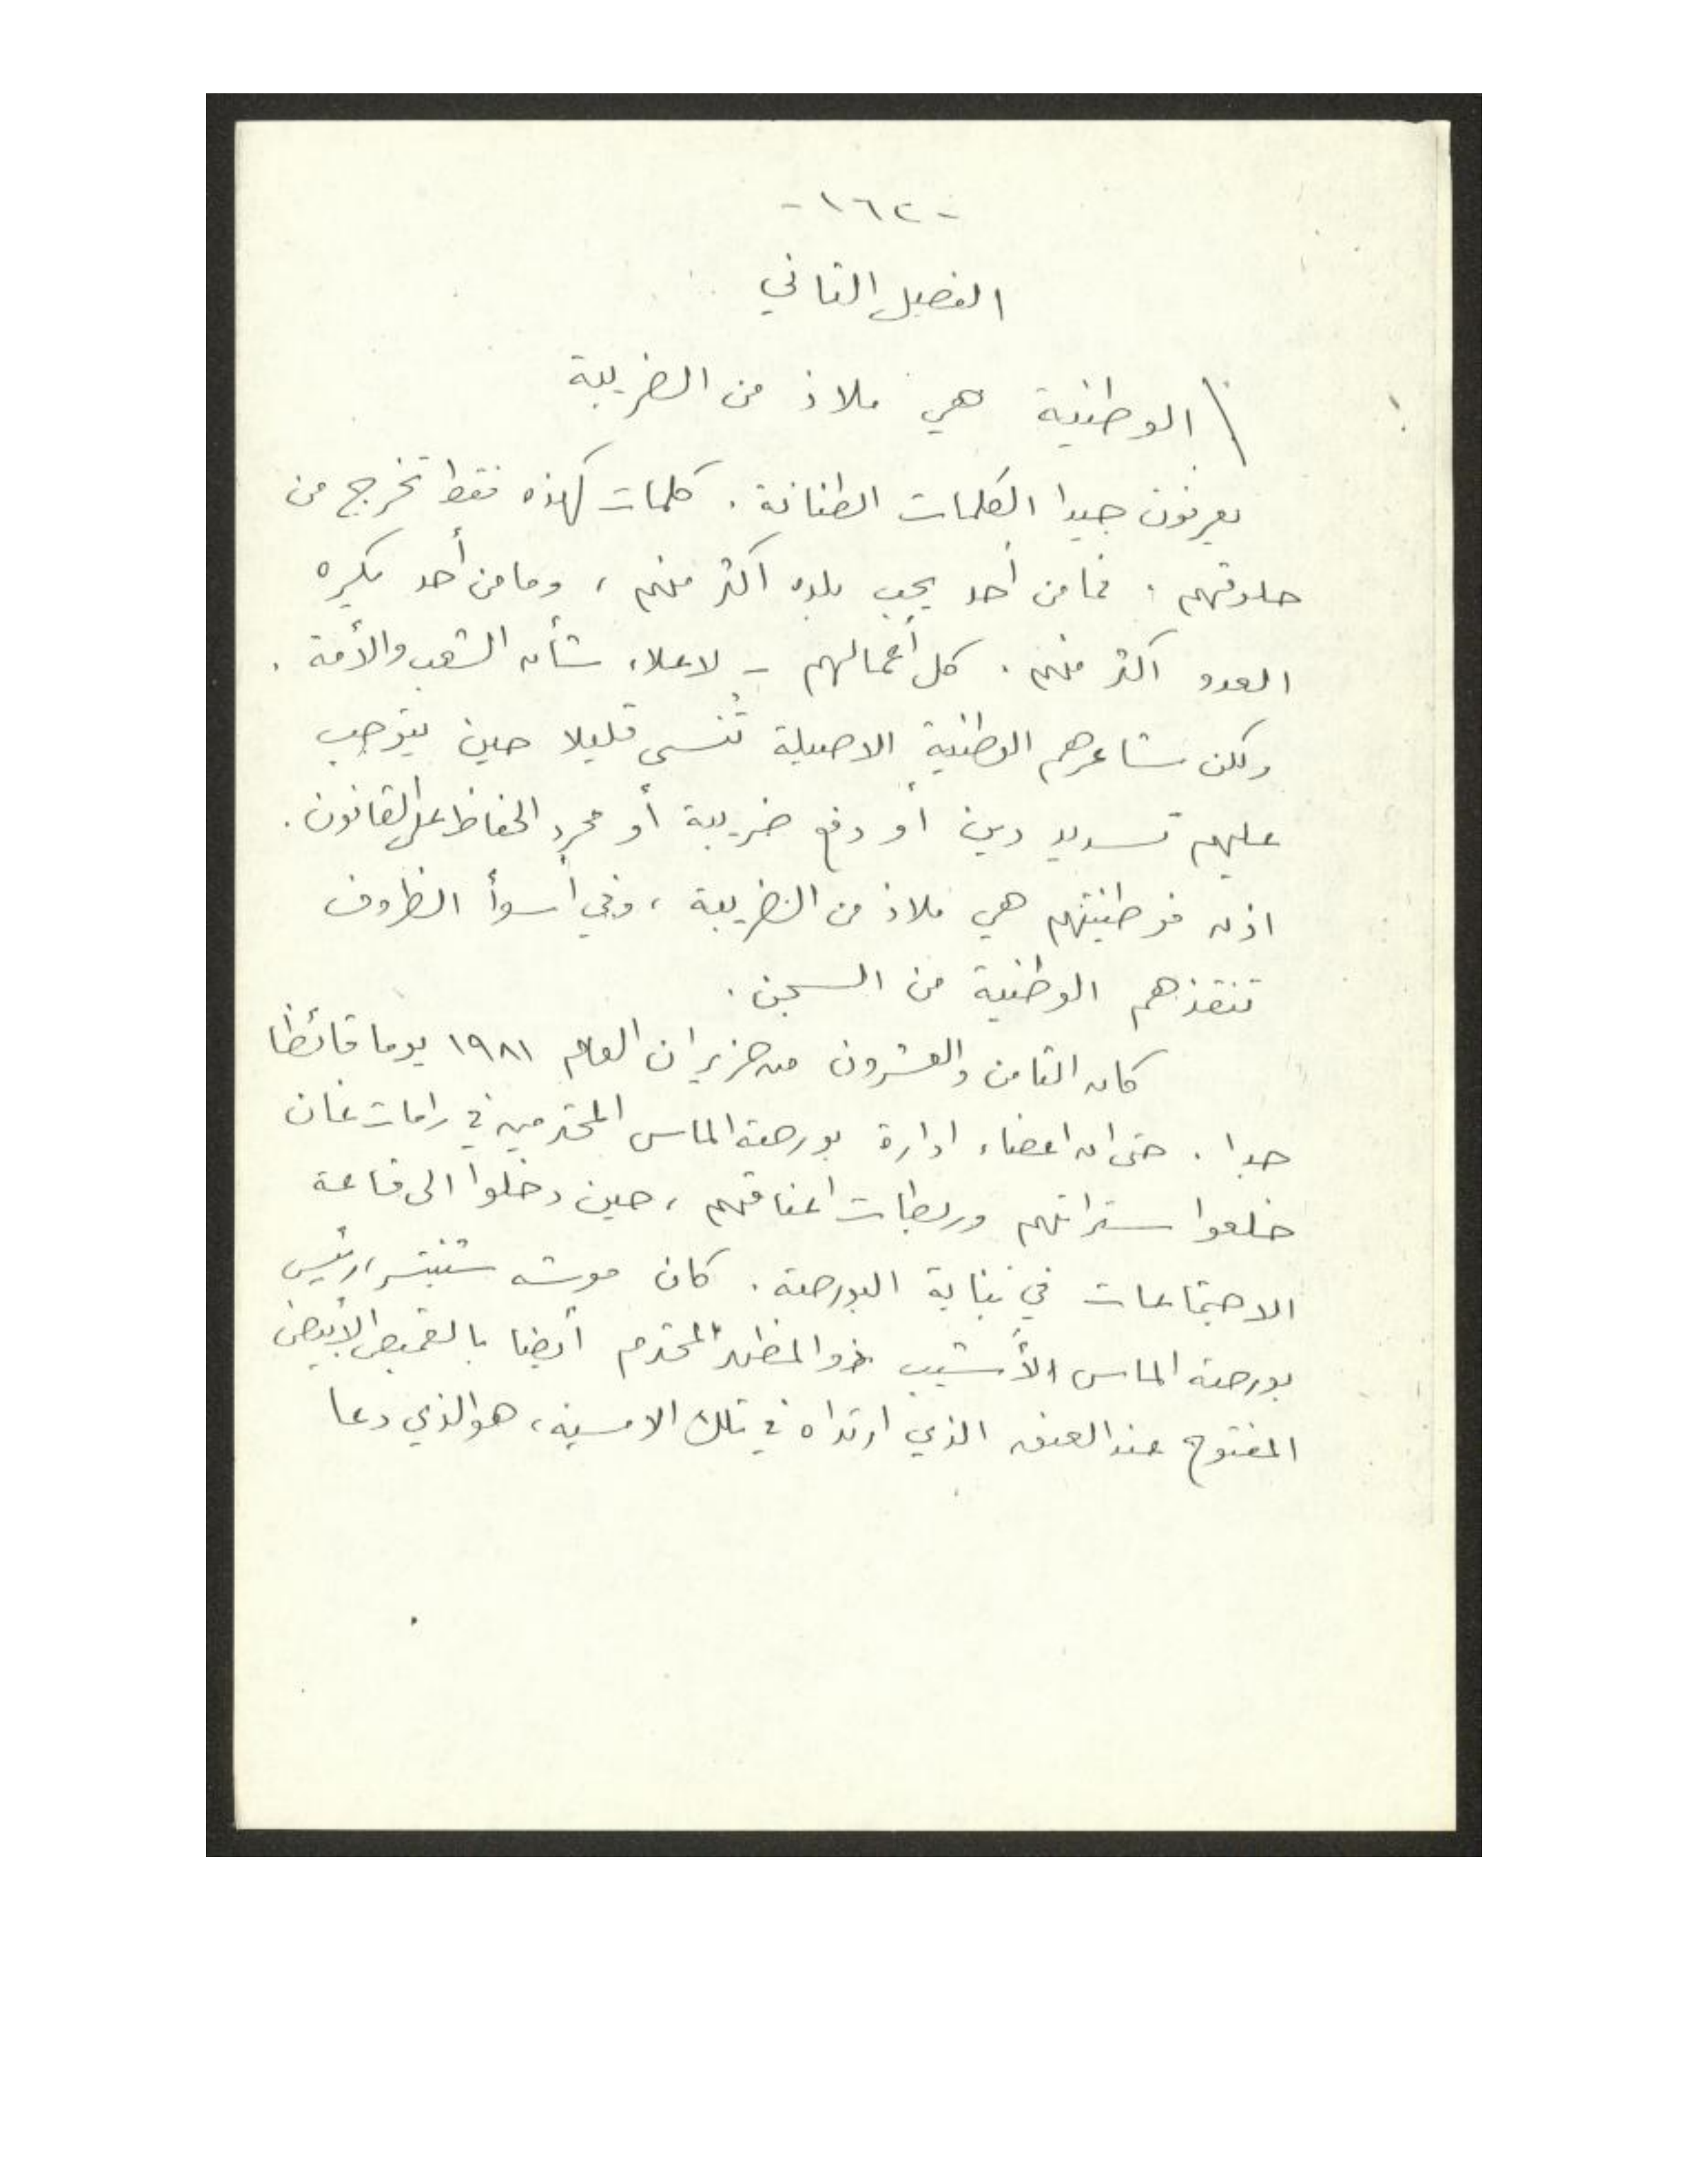 -١٦٢-
الفصل الثاني
الوطنية هي ملاذ من الضريبة
يعرفون جيدا الكلمات الطنانة . كلمات كهذه فقط تخرج من
حلوقهم . فما من أحد يحب بلده اكثر منهم ، وما من أحد يكره
العدو اكثر منهم . كل أعمالهم - لاعلاء شأن الشعب والأمة .
ولكن مشاعرهم الوطنية الاصيلة تُنسى قليلا حين يتوجب
عليهم تسديد دين أو دفع ضريبة أو مجرد الحفاظ على القانون .
اذن فوطنيتهم هي ملاذ من الضريبة ، وفي أسوأ الظروف
تنقذهم الوطنية من السجن .
كان الثامن والعشرون من حزيران العام ١٩٨١ يوما قائظا
جدا . حتى ان اعضاء ادارة بورصة الماس المحترمين في رامات غان
خلعوا ستراتهم وربطات اعناقهم ، حين دخلوا الى قاعة
الاجتماعات في بناية البورصة . كان موشه شنيتسر ، رئيس
بورصة الماس الأشيب ذو المظهر المحترم أيضا بالقميص الأبيض
المفتوح عند العنق الذي ارتداه في تلك الامسية ، هو الذي دعا